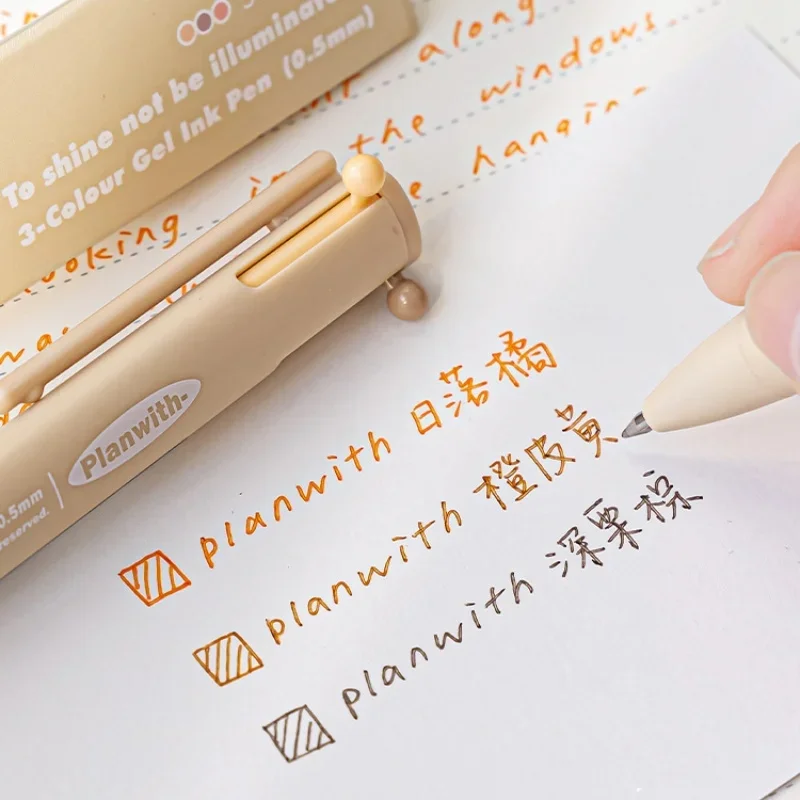 To shine not be illuminate
3-Colour Gel Ink Pen (0.5mm)
along
the windows.
the hanging
looking
Planwith-
0.5mm
reserved.
planwith 日落橘
planwith 橙皮黃
planwith 深栗棕